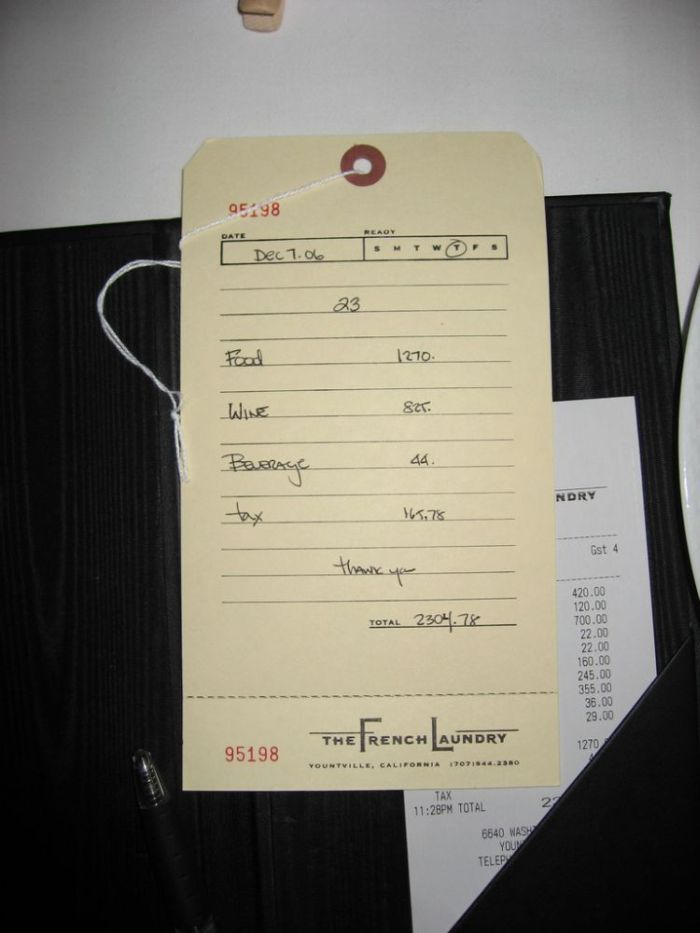 95198
DATE
READY
Dec 7.06
S M T W T F S
23
Food 1270.
Wine 825.
Beverage 44.
tax 165.78
thank you
TOTAL 2304.78
95198
THE FRENCH LAUNDRY
YOUNTVILLE, CALIFORNIA (707)944.2380
NDRY
Gst 4
420.00
120.00
700.00
22.00
22.00
160.00
245.00
355.00
36.00
29.00
1270
TAX
11:28PM TOTAL 22
6640 WASH
YOUN
TELEP